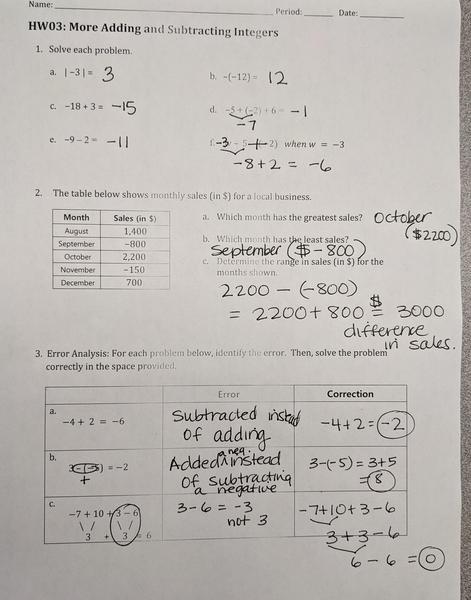 Name: Period: Date:
HW03: More Adding and Subtracting Integers
1. Solve each problem.
a. |−3| = 3
b. −(−12) = 12
c. −18 + 3 = −15
d. −5 + (−2) + 6 = −1
−7
e. −9 − 2 = −11
f. −3 − 5 + 2) when w = −3
−8 + 2 = −6
2. The table below shows monthly sales (in $) for a local business.
Month Sales (in $)
August 1,400
September −800
October 2,200
November −150
December 700
a. Which month has the greatest sales? October
($2200)
b. Which month has the least sales?
September ($−800)
c. Determine the range in sales (in $) for the
months shown.
2200 − (−800)
= 2200 + 800 = $3000
difference
in sales.
3. Error Analysis: For each problem below, identify the error. Then, solve the problem
correctly in the space provided.
Error Correction
a.
−4 + 2 = −6
Subtracted instead
of adding
−4+2 = −2
b.
3−(−5) = −2
+
Added a neg. instead
of subtracting
a negative
3−(−5) = 3+5
= 8
c.
−7 + 10 + 3 − 6
3 + 3 = 6
3−6 = −3
not 3
−7+10+3−6
3+3−6
6 − 6 = 0